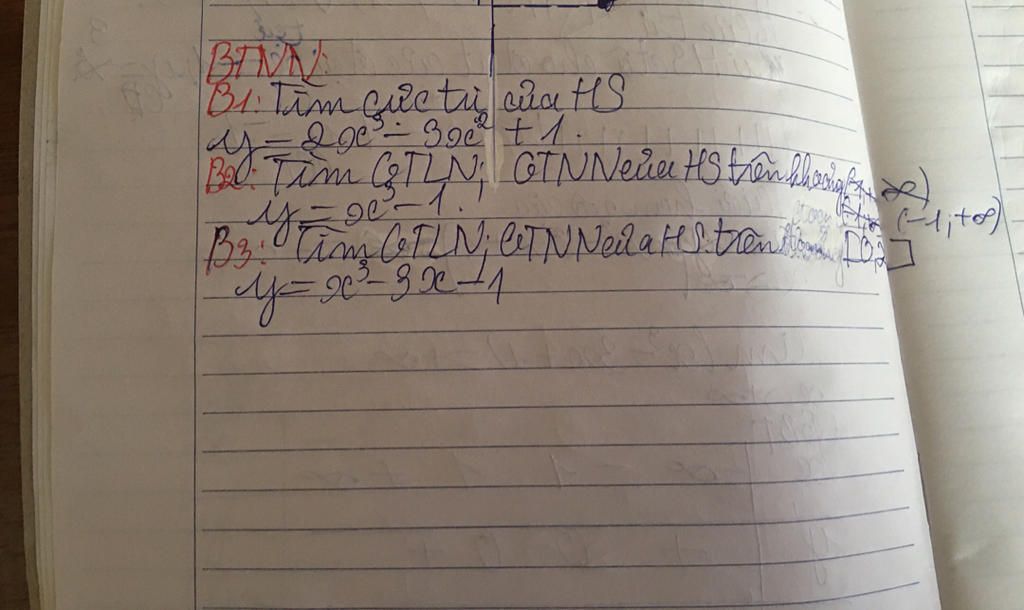 BTNN:
B1: Tìm cực trị của HS
y = 2x³ - 3x² + 1.
B2: Tìm GTLN; GTNN của HS trên khoảng
(-1; +∞)
y = x³ - 1.
B3: Tìm GTLN; GTNN của HS trên
y = x³ - 3x - 1